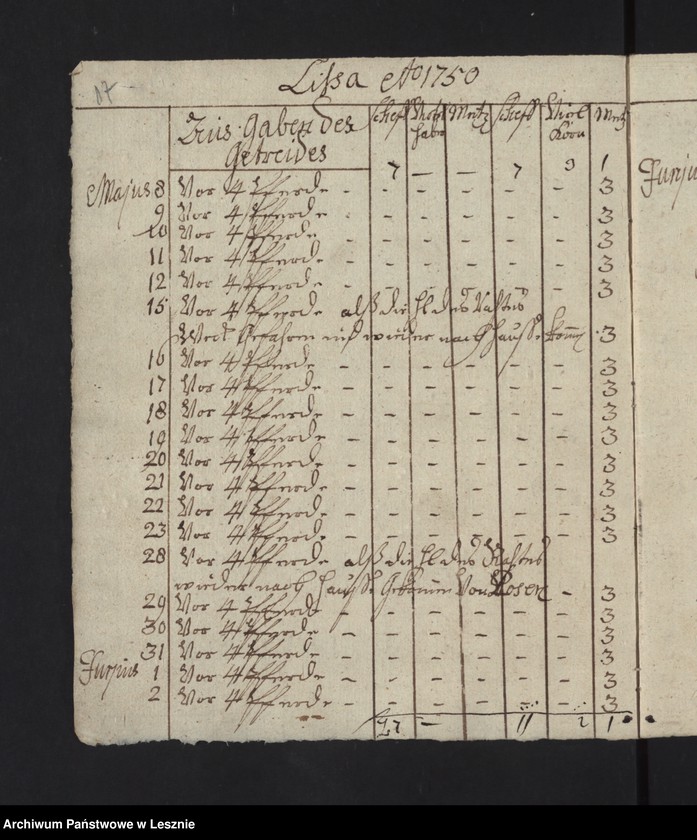 17
Lissa Ao 1750
Aus Gaben des Getreides
Scheff Virtl haber Metz Scheff Virtl Korn Metz
7 — — 7 3 1
Majus 8 Vor 4 Pferde - - - - - - 3
9 Vor 4 Pferde - - - - - - 3
10 Vor 4 Pferde - - - - - - 3
11 Vor 4 Pferde - - - - - - 3
12 Vor 4 Pferde - - - - - - 3
15 Vor 4 Pferde alß die
wieder nach Hausse 3
16 Vor 4 Pferde - - - - - - 3
17 Vor 4 Pferde - - - - - - 3
18 Vor 4 Pferde - - - - - - 3
19 Vor 4 Pferde - - - - - - 3
20 Vor 4 Pferde - - - - - - 3
21 Vor 4 Pferde - - - - - - 3
22 Vor 4 Pferde - - - - - - 3
23 Vor 4 Pferde - - - - - - 3
28 Vor 4 Pferde alß die
wieder nach Hausse Von Posen - 3
29 Vor 4 Pferde - - - - - - 3
30 Vor 4 Pferde - - - - - - 3
31 Vor 4 Pferde - - - - - - 3
Junius 1 Vor 4 Pferde - - - - - - 3
2 Vor 4 Pferde - - - - - - 3
27 — 11 2 1
Junju
Archiwum Państwowe w Lesznie